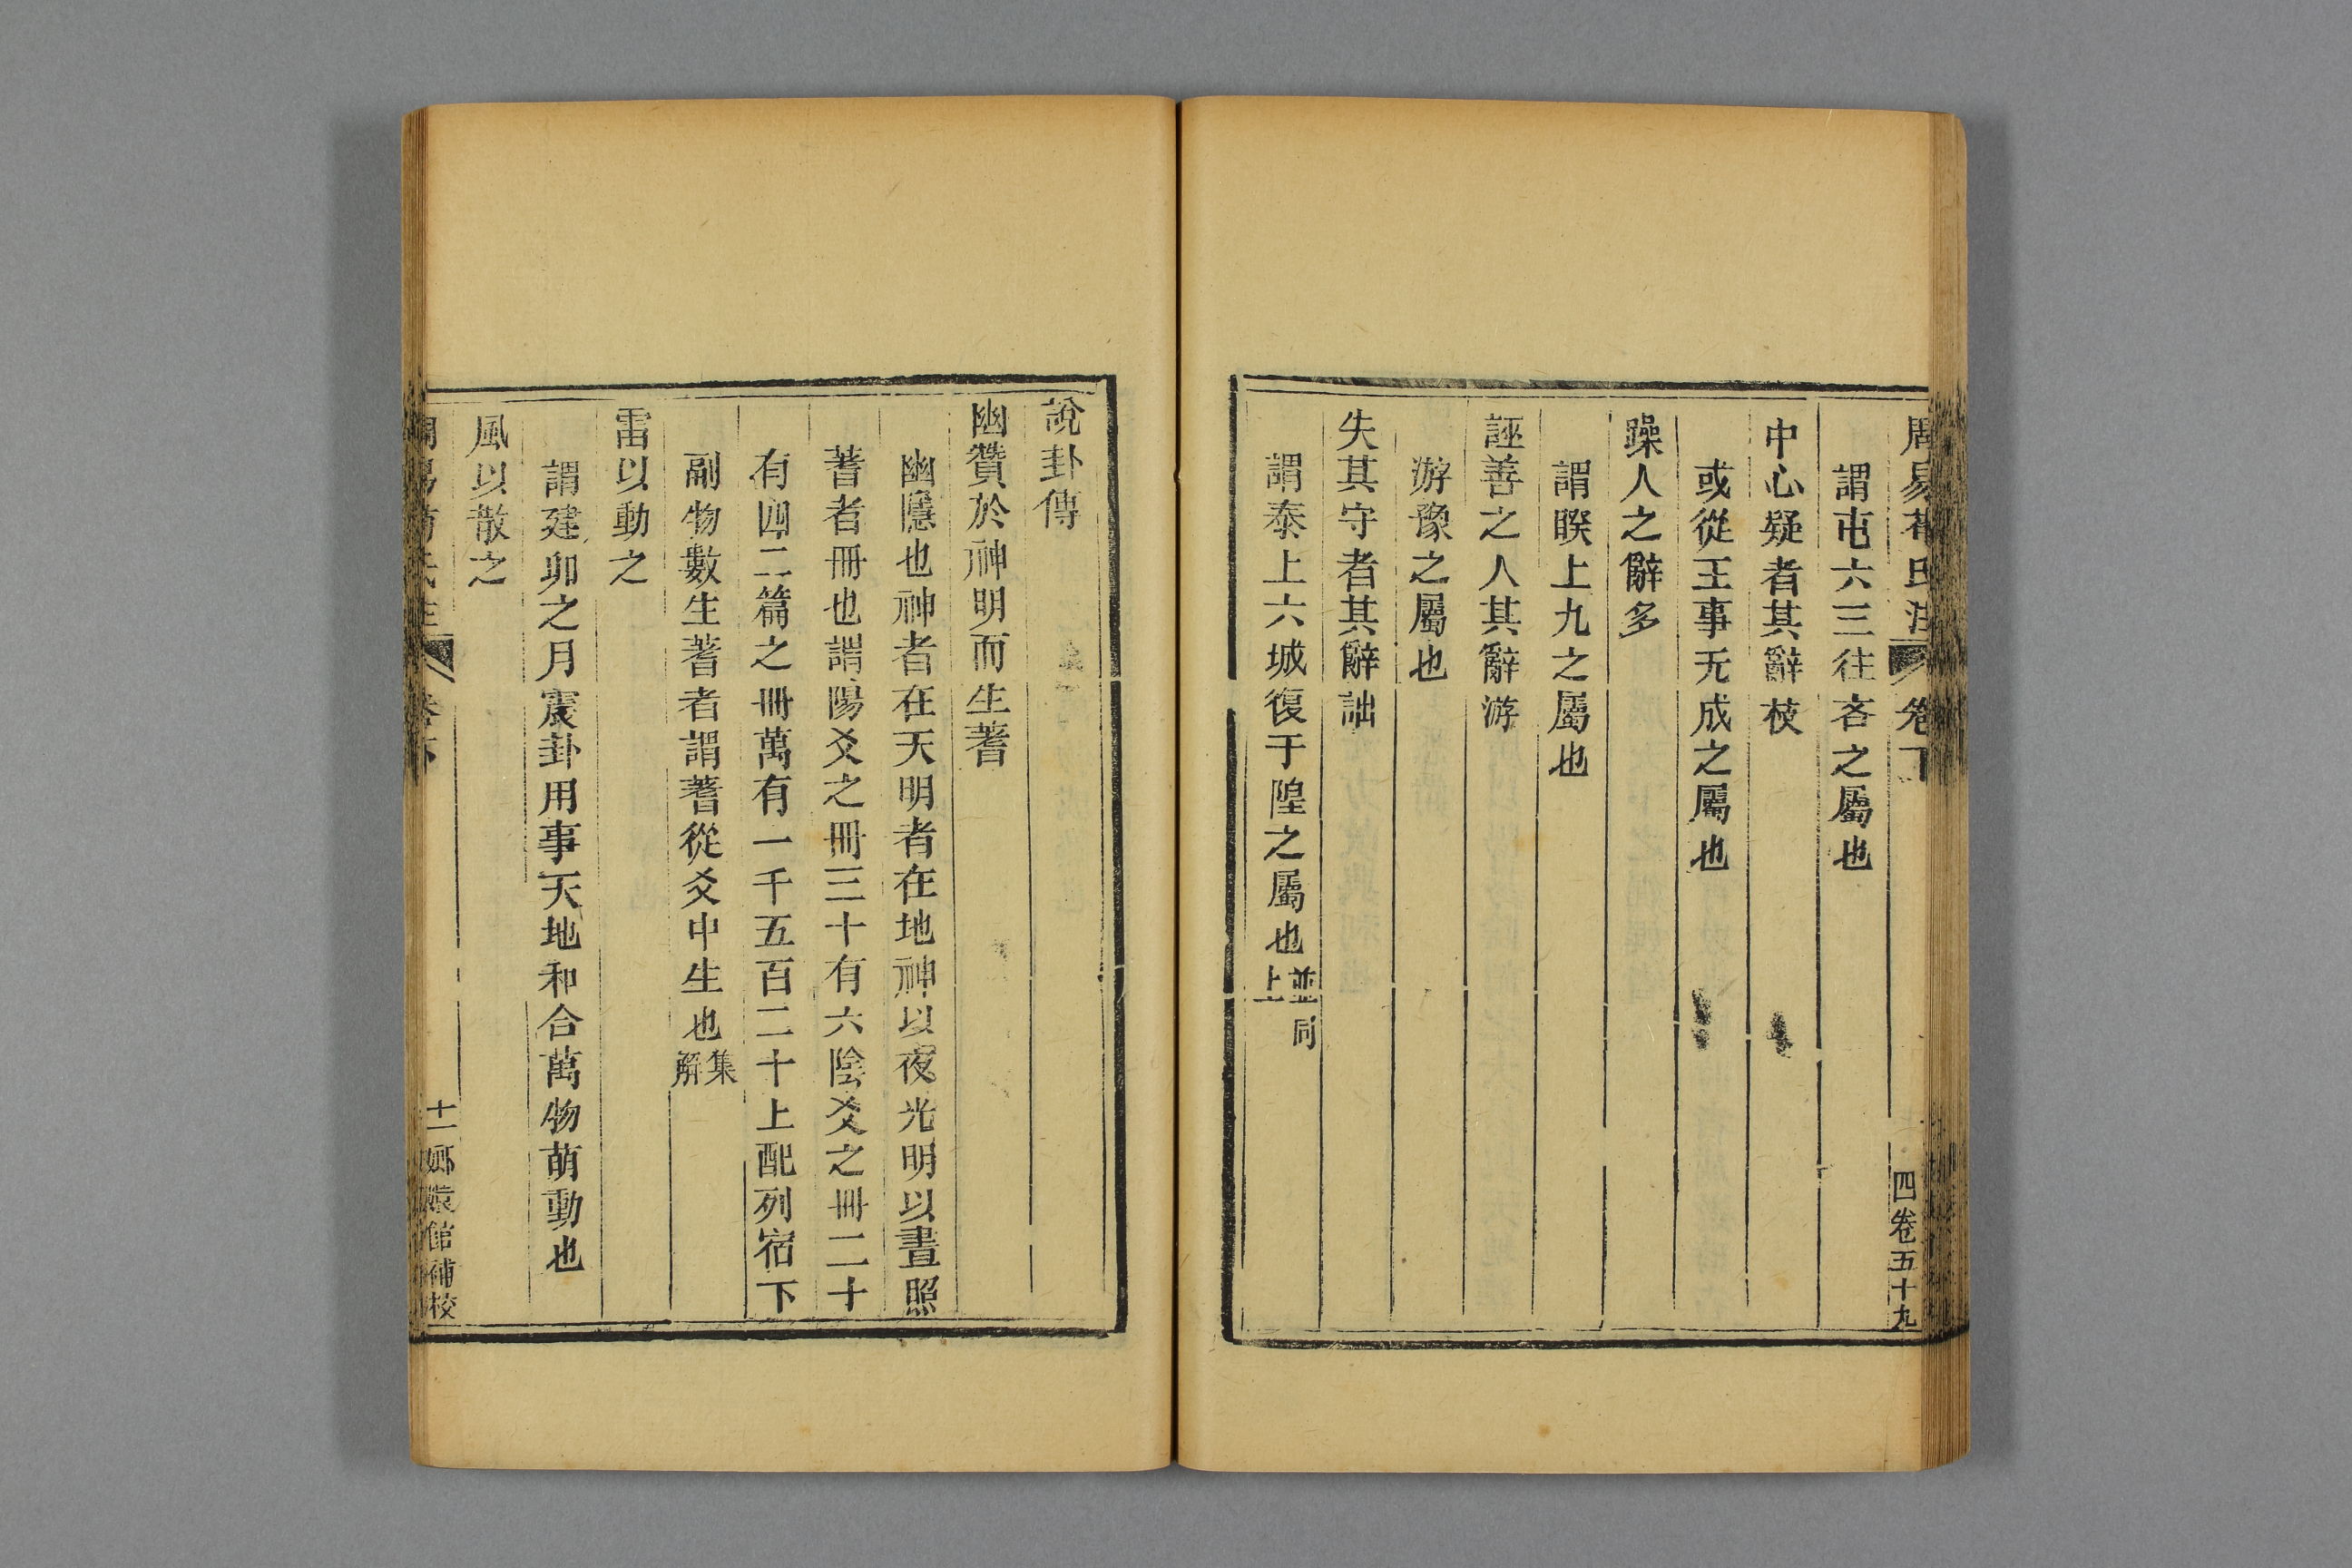 周易荀氏注 卷下 四卷五十九
謂屯六三往吝之屬也
中心疑者其辭枝
或從王事无成之屬也
躁人之辭多
謂睽上九之屬也
誣善之人其辭游
游豫之屬也
失其守者其辭詘
謂泰上六城復于隍之屬也並同上
說卦傳
幽贊於神明而生蓍
幽隱也神者在天明者在地神以夜光明以晝照
蓍者冊也謂陽爻之冊三十有六陰爻之冊二十
有四二篇之冊萬有一千五百二十上配列宿下
副物數生蓍者謂蓍從爻中生也集解
雷以動之
謂建卯之月震卦用事天地和合萬物萌動也
風以散之
周易荀氏注 卷下 十一 嫏嬛館補校